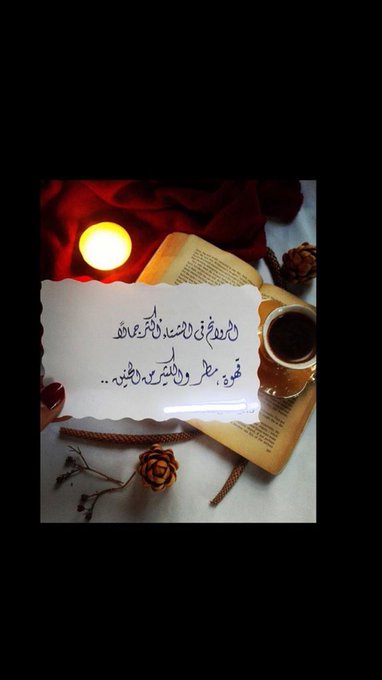 الروائح في الشتاء أكثر جمالاً
قهوة، مطر والكثير من الحنين ..